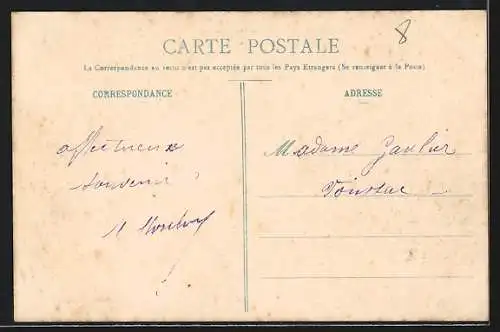 8
CARTE POSTALE
La Correspondance au recto n'est pas acceptée par tous les Pays Etrangers (Se renseigner à la Poste)
CORRESPONDANCE
ADRESSE
affectueux
souvenir
Madame